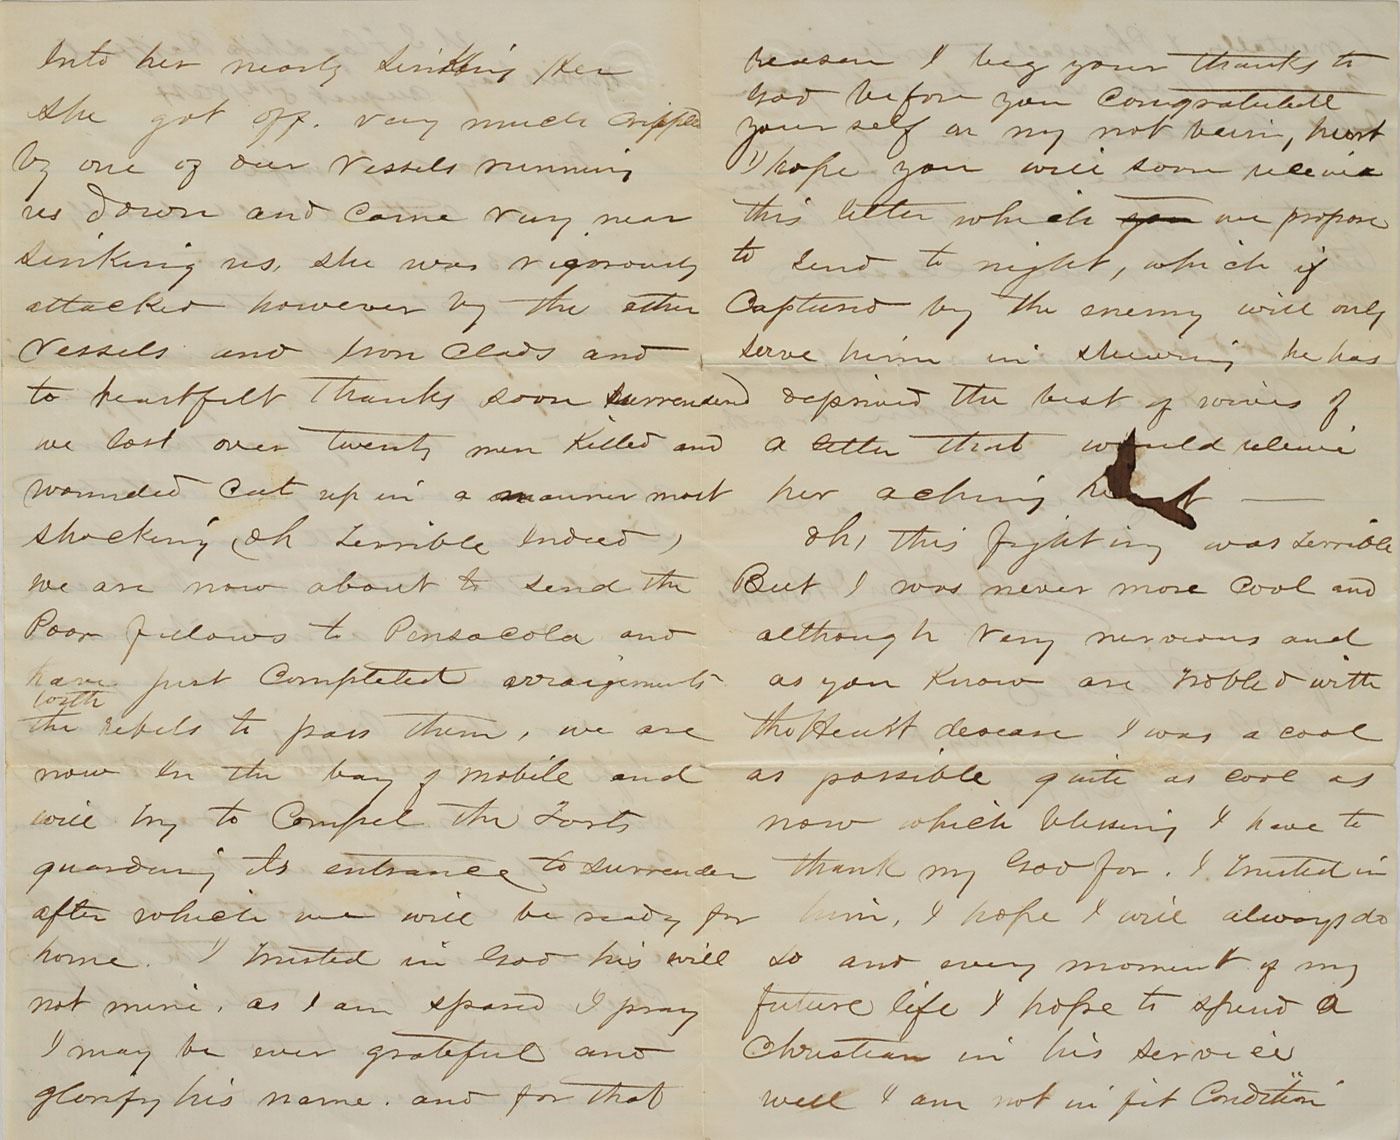 into her nearly sinkking her
she got off. very much crippled
by one of our vessels running
us down and came very near
sinking us, she was vigorously
attacked however by the other
vessels and Iron Clads and
to heartfelt thanks soon surrendered
we lost over twenty men killed and
wounded cut up in a manner most
shocking (oh terrible indeed)
we are now about to send the
Poor fellows to Pensacola and
have just completed arraigements
with
the rebels to pass them, we are
now in the bay of mobile and
will try to Compel the Forts
guarding its entrance to surrender
after which we will be ready for
home. I trusted in God his will
not mine. as I am spared I pray
I may be ever grateful and
glorify his name. and for that
reason I beg your thanks to
God before you congratulate
yourself on my not being hurt
I hope you will soon receive
this letter which you we propose
to send to night, which if
Captured by the enemy will only
serve him in shewing he has
deprived the best of wives of
a letter that would releive
her aching he t —
oh, this fighting was terrible
But I was never more cool and
although very nervous and
as you Know are trobled with
the Heart desease I was a cool
as possible quite as cool as
now which blessing I have to
thank my God for. I trusted in
him, I hope I will always do
so and every moment of my
future life I hope to spend a
Christian in his service
well I am not in fit Condition